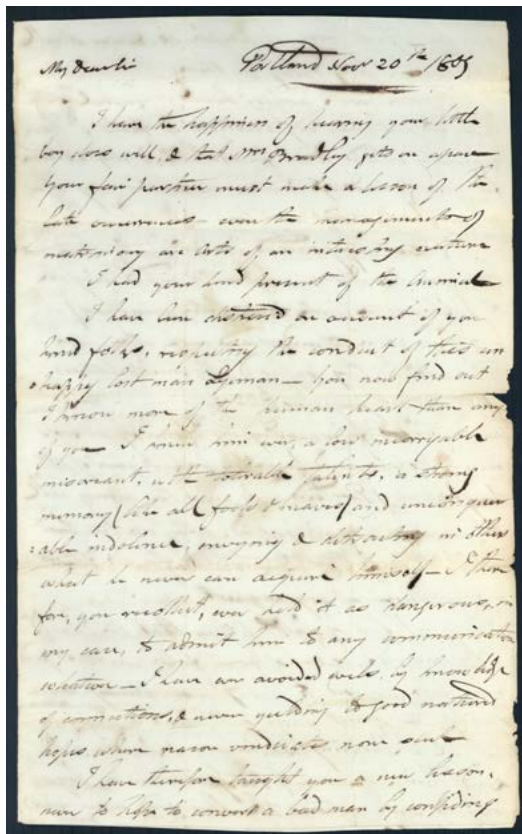 My Dear Sir Portland Nov 20th 1805
I have the happiness of hearing your little
boy does well, & that Mrs Bradley gets on apace
Your fair partner must make a lesson of the
late occurrences even the managements of
matrimony are arts of an intricate nature
I had your kind present of the
I have been distressed on account of you
kind folks, respecting the conduct of this un
happy lost man Lyman — You now find out
I know more of the human heart than any
of you I knew him ever, a low incorrigible
miscreant, with tolerable talents, a strong
memory (like all fools & knaves) and unconquer
able indolence, envying & detracting in others
what he never can acquire himself — I there
fore, you recollect, ever held it as dangerous, in
my case, to admit him to any communication
whatever — I have ever avoided evils, by knowledge
of connections, & never yielding to good natured
hopes where reason vindicates none such
I have therefore taught you a new lesson,
never to hope to convert a bad man by confiding